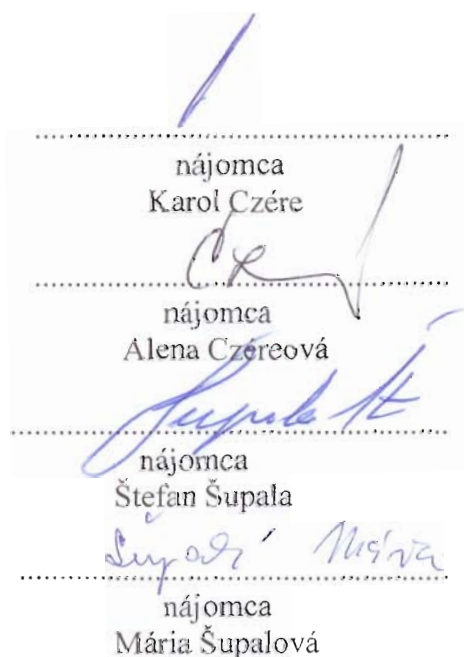 nájomca
Karol Czére
nájomca
Alena Czéreová
Šupala Št
nájomca
Štefan Šupala
Mária
nájomca
Mária Šupalová